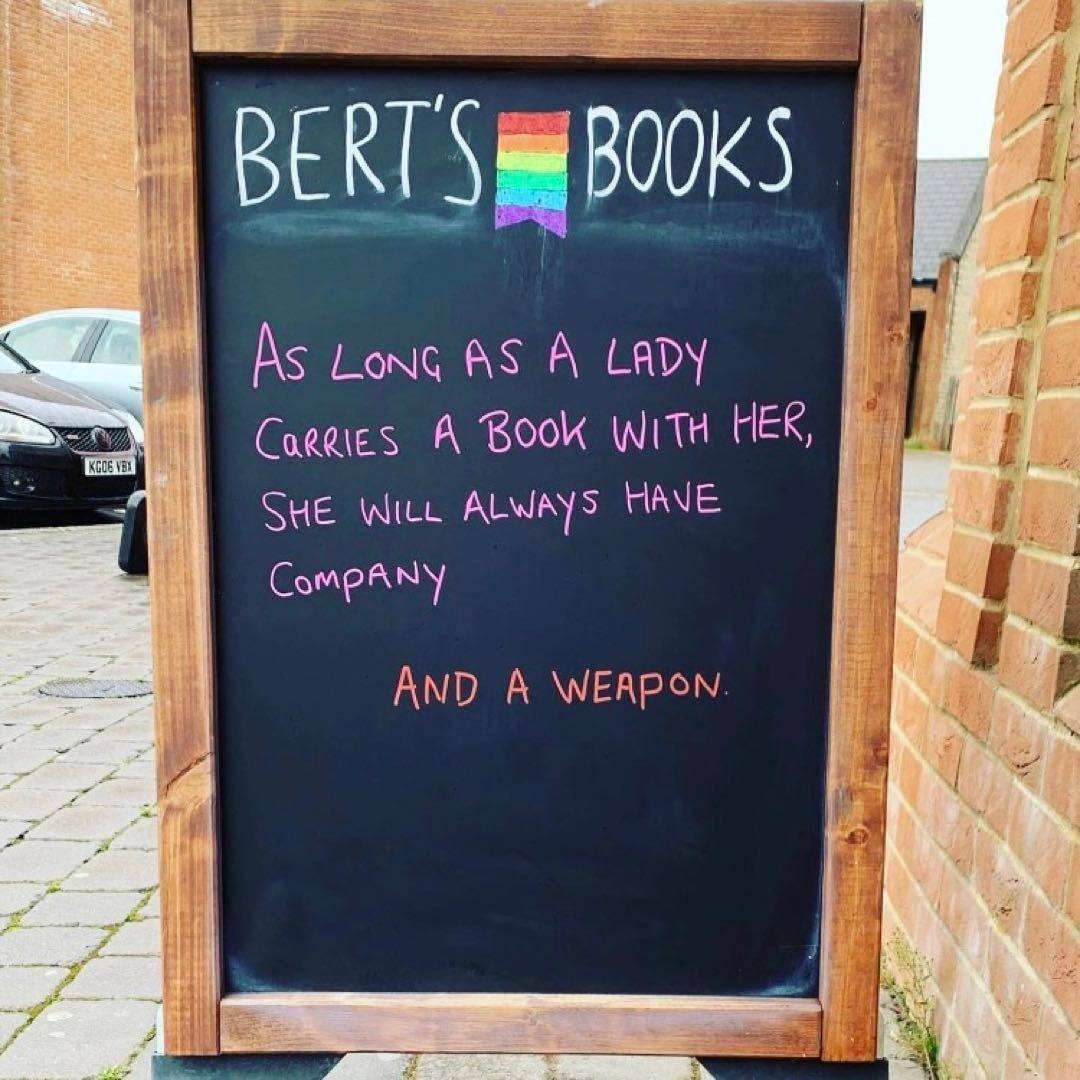 BERT'S BOOKS
AS LONG AS A LADY
CARRIES A BOOK WITH HER,
SHE WILL ALWAYS HAVE
COMPANY
AND A WEAPON.
KG06 VBX